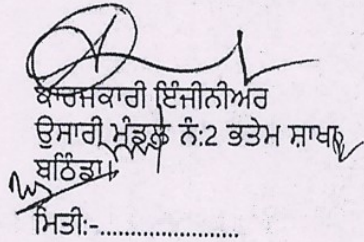 ਕਾਰਜਕਾਰੀ ਇੰਜੀਨੀਅਰ
ਉਸਾਰੀ ਮੰਡਲ ਨੰ:2 ਭਤੇਮ ਸ਼ਾਖਾ,
ਬਠਿੰਡਾ।
ਮਿਤੀ:-......................